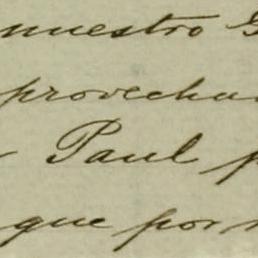 nuestro G
provecha
Paul p
que por